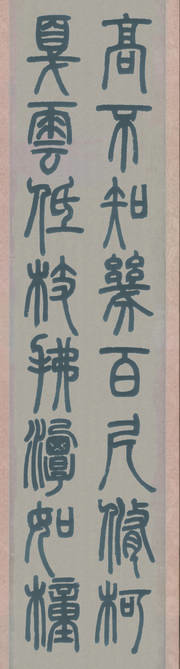 高不知幾百尺修柯
戛雲低枝拂潭如幢